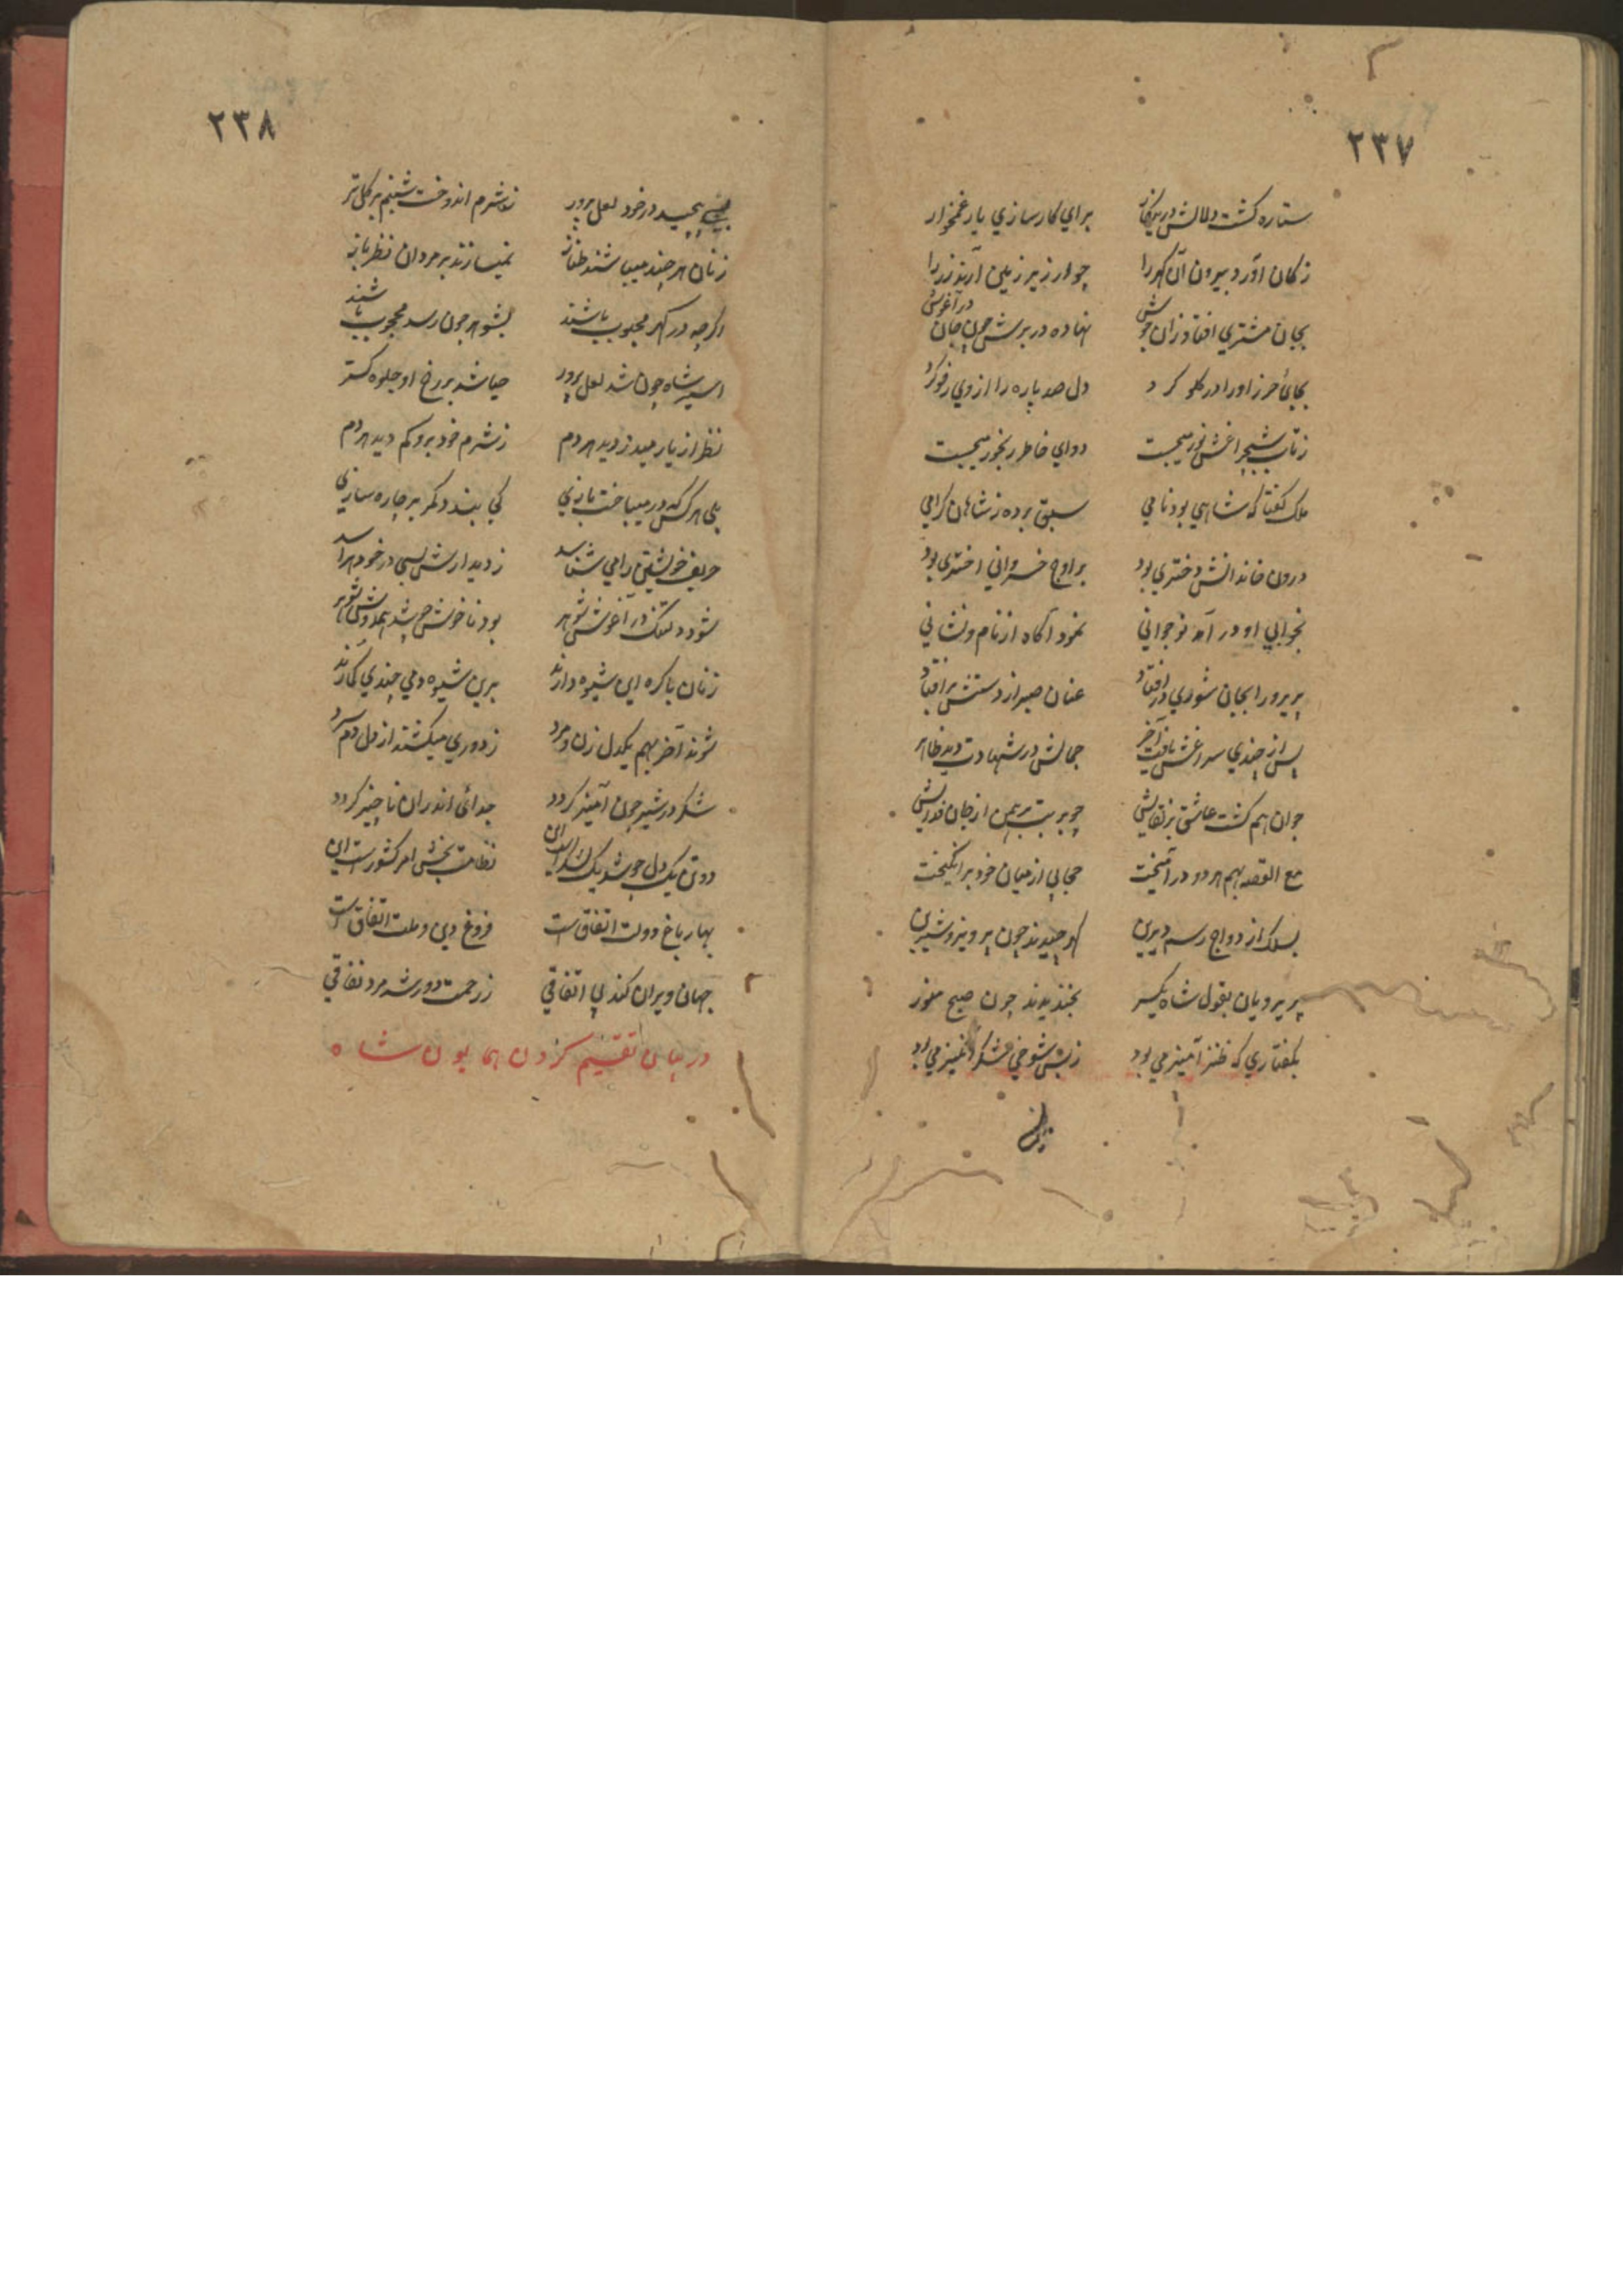 ٢٣٧
ستاره کشت دلالش در ینکار برای کارسازی یار غمخوار
ز کان آورد بیرون آن کهر را چو ار زیر زمین آرند زر را
بجان مشتری افتاد زان جوش نهاده در برش چون جان در آغوش
بجای حرز او را در کلو کرد دل صد پاره را از وی رفو کرد
ز تاب شبچراغش نور میجست دوای خاطر رنجور میجست
ملک کفتا که شاهی بود نامی سبق برده ز شاهان کرامی
درون خاندانش دختری بود بر اوج خسروانی اختری بود
بخوابی او در آمد نوجوانی نمود آکاه از نام و نشانی
پریرو را بجان شوری در افتاد عنان صبر از دستش بر افتاد
پس از چندی سراغش یافت آخر جمالش در شهادت دید ظاهر
جوان هم کشت عاشق بر لقایش چو بربت برهمن از جان فدایش
مع القصه بهم هر دو در آمیخت حجابی از میان خود بر انکیخت
بسلک ازدواج رسم دیرین کهر چیدند چون پرویز و شیرین
پریرویان بقول شاه یکسر بخندیدند چون صبح منور
بکفتاری که طنز آمیز می بود ز بس شوخی شکر انکیز می بود
٢٣٨
پیچید در خود لعل پرور ز شرم اندوخت شبنم بر کل تر
زنان هر چند میباشند طناز نمیسازند بر مردان نظر باز
اکرچه در کهر محبوب باشند بشوهر چون رسد محجوب باشند
اسیر شاه چون شد لعل پرور حیا شد بر رخ او جلوه کستر
نظر از یار میدزدید هر دم ز شرم خود برو کم دید هر دم
بلی هر کس که در میباخت بازی کی بندد کمر بر چاره سازی
حریف خویشتن را می شناسد ز دیدارش بسی در خود هراسد
شود دلتنک در آغوش شوهر بود ناخوش چو شد همدوش شوهر
زنان باکره این شیوه دارند برین شیوه دمی چندی کمارند
شوند آخر بهم یکدل زن و مرد ز دوری میکشند از دل دم سرد
شکر در شیر چون آمیز کردد جدائی اندران ناچیز کردد
دو تن یک دل چو شد نظامت بخش امر کشورست این
بهار باغ دولت اتفاق است فروغ دین و ملت اتفاق است
جهان ویران کند بی اتفاقی ز رحمت دور شد مرد نفاقی
در بیان تقسیم کردن همایون شاه